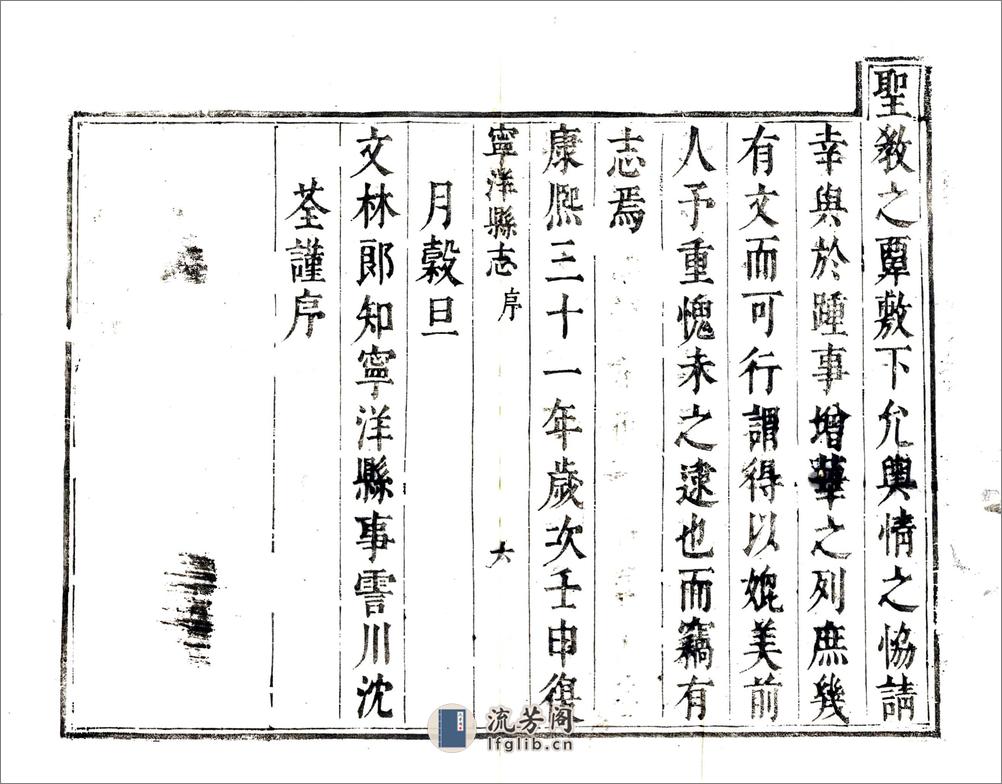 聖教之覃敷下允輿情之恊請
幸與於踵事增華之列庶幾
有文而可行謂得以媲美前
人予重愧未之逮也而竊有
志焉
康熙三十一年歲次壬申復
寧洋縣志 序 六
月穀旦
文林郎知寧洋縣事霅川沈
荃謹序
流芳阁
lfglib.cn